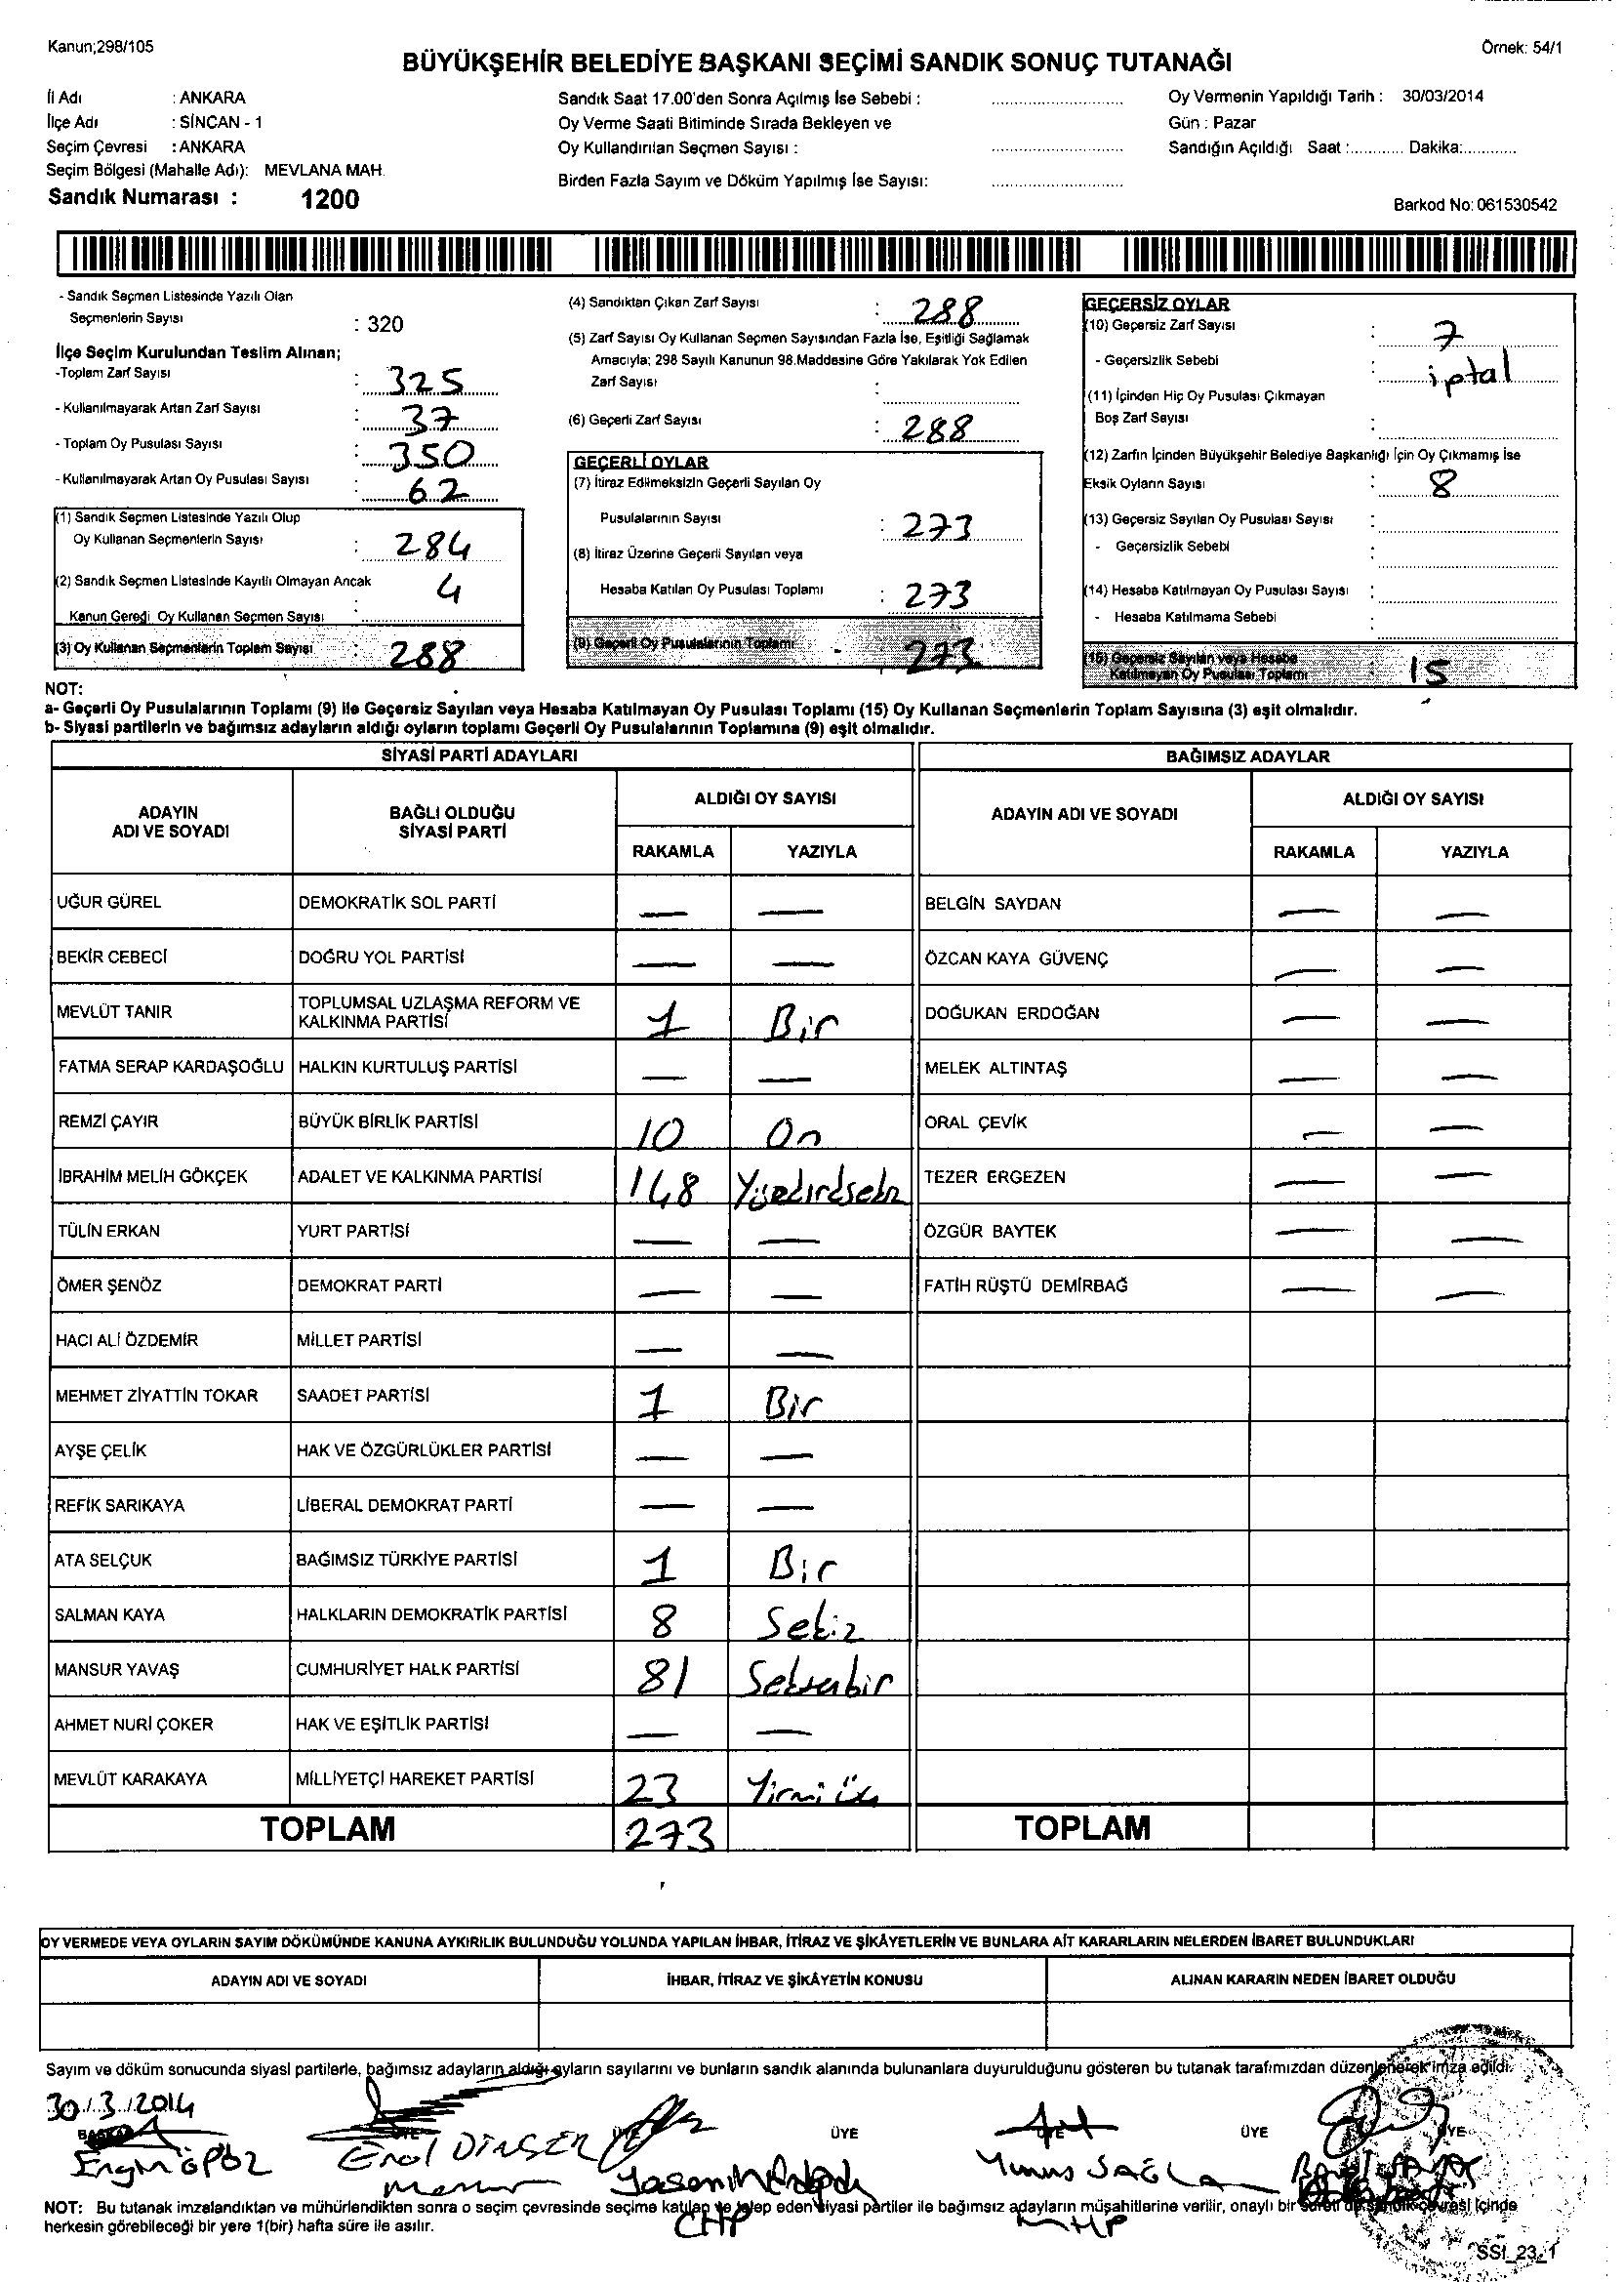 Kanun;298/105
Örnek: 54/1
BÜYÜKŞEHİR BELEDİYE BAŞKANI SEÇİMİ SANDIK SONUÇ TUTANAĞI
İl Adı : ANKARA
İlçe Adı : SİNCAN - 1
Seçim Çevresi : ANKARA
Seçim Bölgesi (Mahalle Adı): MEVLANA MAH.
Sandık Numarası : 1200
Sandık Saat 17.00'den Sonra Açılmış İse Sebebi :
Oy Verme Saati Bitiminde Sırada Bekleyen ve
Oy Kullandırılan Seçmen Sayısı :
Birden Fazla Sayım ve Döküm Yapılmış İse Sayısı:
Oy Vermenin Yapıldığı Tarih : 30/03/2014
Gün : Pazar
Sandığın Açıldığı Saat :............ Dakika:............
Barkod No: 061530542
- Sandık Seçmen Listesinde Yazılı Olan
Seçmenlerin Sayısı : 320
İlçe Seçim Kurulundan Teslim Alınan;
-Toplam Zarf Sayısı : 325
- Kullanılmayarak Artan Zarf Sayısı : 37
- Toplam Oy Pusulası Sayısı : 350
- Kullanılmayarak Artan Oy Pusulası Sayısı : 62
(1) Sandık Seçmen Listesinde Yazılı Olup
Oy Kullanan Seçmenlerin Sayısı : 284
(2) Sandık Seçmen Listesinde Kayıtlı Olmayan Ancak
Kanun Gereği Oy Kullanan Seçmen Sayısı : 4
(3) Oy Kullanan Seçmenlerin Toplam Sayısı : 288
(4) Sandıktan Çıkan Zarf Sayısı : 288
(5) Zarf Sayısı Oy Kullanan Seçmen Sayısından Fazla İse, Eşitliği Sağlamak
Amacıyla; 298 Sayılı Kanunun 98.Maddesine Göre Yakılarak Yok Edilen
Zarf Sayısı :
(6) Geçerli Zarf Sayısı : 288
GEÇERLİ OYLAR
(7) İtiraz Edilmeksizin Geçerli Sayılan Oy
Pusulalarının Sayısı : 273
(8) İtiraz Üzerine Geçerli Sayılan veya
Hesaba Katılan Oy Pusulası Toplamı : 273
(9) Geçerli Oy Pusulalarının Toplamı : 273
GEÇERSİZ OYLAR
(10) Geçersiz Zarf Sayısı : 7
- Geçersizlik Sebebi : iptal
(11) İçinden Hiç Oy Pusulası Çıkmayan
Boş Zarf Sayısı :
(12) Zarfın İçinden Büyükşehir Belediye Başkanlığı İçin Oy Çıkmamış İse
Eksik Oyların Sayısı : 8
(13) Geçersiz Sayılan Oy Pusulası Sayısı :
- Geçersizlik Sebebi :
(14) Hesaba Katılmayan Oy Pusulası Sayısı :
- Hesaba Katılmama Sebebi :
(15) Geçersiz Sayılan veya Hesaba
Katılmayan Oy Pusulası Toplamı : 15
NOT:
a- Geçerli Oy Pusulalarının Toplamı (9) ile Geçersiz Sayılan veya Hesaba Katılmayan Oy Pusulası Toplamı (15) Oy Kullanan Seçmenlerin Toplam Sayısına (3) eşit olmalıdır.
b- Siyasi partilerin ve bağımsız adayların aldığı oyların toplamı Geçerli Oy Pusulalarının Toplamına (9) eşit olmalıdır.
SİYASİ PARTİ ADAYLARI
BAĞIMSIZ ADAYLAR
ADAYIN ADI VE SOYADI
BAĞLI OLDUĞU SİYASİ PARTİ
ALDIĞI OY SAYISI
RAKAMLA YAZIYLA
ADAYIN ADI VE SOYADI
ALDIĞI OY SAYISI
RAKAMLA YAZIYLA
UĞUR GÜREL DEMOKRATİK SOL PARTİ — — BELGİN SAYDAN — —
BEKİR CEBECİ DOĞRU YOL PARTİSİ — — ÖZCAN KAYA GÜVENÇ — —
MEVLÜT TANIR TOPLUMSAL UZLAŞMA REFORM VE KALKINMA PARTİSİ 1 Bir DOĞUKAN ERDOĞAN — —
FATMA SERAP KARDAŞOĞLU HALKIN KURTULUŞ PARTİSİ — — MELEK ALTINTAŞ — —
REMZİ ÇAYIR BÜYÜK BİRLİK PARTİSİ 10 On ORAL ÇEVİK — —
İBRAHİM MELİH GÖKÇEK ADALET VE KALKINMA PARTİSİ 148 TEZER ERGEZEN — —
TÜLİN ERKAN YURT PARTİSİ — — ÖZGÜR BAYTEK — —
ÖMER ŞENÖZ DEMOKRAT PARTİ — — FATİH RÜŞTÜ DEMİRBAĞ — —
HACI ALİ ÖZDEMİR MİLLET PARTİSİ — —
MEHMET ZİYATTİN TOKAR SAADET PARTİSİ 1 Bir
AYŞE ÇELİK HAK VE ÖZGÜRLÜKLER PARTİSİ — —
REFİK SARIKAYA LİBERAL DEMOKRAT PARTİ — —
ATA SELÇUK BAĞIMSIZ TÜRKİYE PARTİSİ 1 Bir
SALMAN KAYA HALKLARIN DEMOKRATİK PARTİSİ 8 Sekiz
MANSUR YAVAŞ CUMHURİYET HALK PARTİSİ 81 Seksenbir
AHMET NURİ ÇOKER HAK VE EŞİTLİK PARTİSİ — —
MEVLÜT KARAKAYA MİLLİYETÇİ HAREKET PARTİSİ 23 Yirmi üç
TOPLAM 273 TOPLAM
OY VERMEDE VEYA OYLARIN SAYIM DÖKÜMÜNDE KANUNA AYKIRILIK BULUNDUĞU YOLUNDA YAPILAN İHBAR, İTİRAZ VE ŞİKÂYETLERİN VE BUNLARA AİT KARARLARIN NELERDEN İBARET BULUNDUKLARI
ADAYIN ADI VE SOYADI İHBAR, İTİRAZ VE ŞİKÂYETİN KONUSU ALINAN KARARIN NEDEN İBARET OLDUĞU
Sayım ve döküm sonucunda siyasi partilerle, bağımsız adayların aldığı oyların sayılarını ve bunların sandık alanında bulunanlara duyurulduğunu gösteren bu tutanak tarafımızdan düzenlenerek imza edildi.
30.1.3.12014
BAŞKAN ÜYE ÜYE ÜYE ÜYE ÜYE ÜYE
Engin Erol DİNÇER Yasemin Yunus SAĞLA
CHP MHP
NOT: Bu tutanak imzalandıktan ve mühürlendikten sonra o seçim çevresinde seçime katılan ve talep eden siyasi partiler ile bağımsız adayların müşahitlerine verilir, onaylı bir sureti de sandık çevresi içinde
herkesin görebileceği bir yere 1(bir) hafta süre ile asılır.
SSİ_23_1